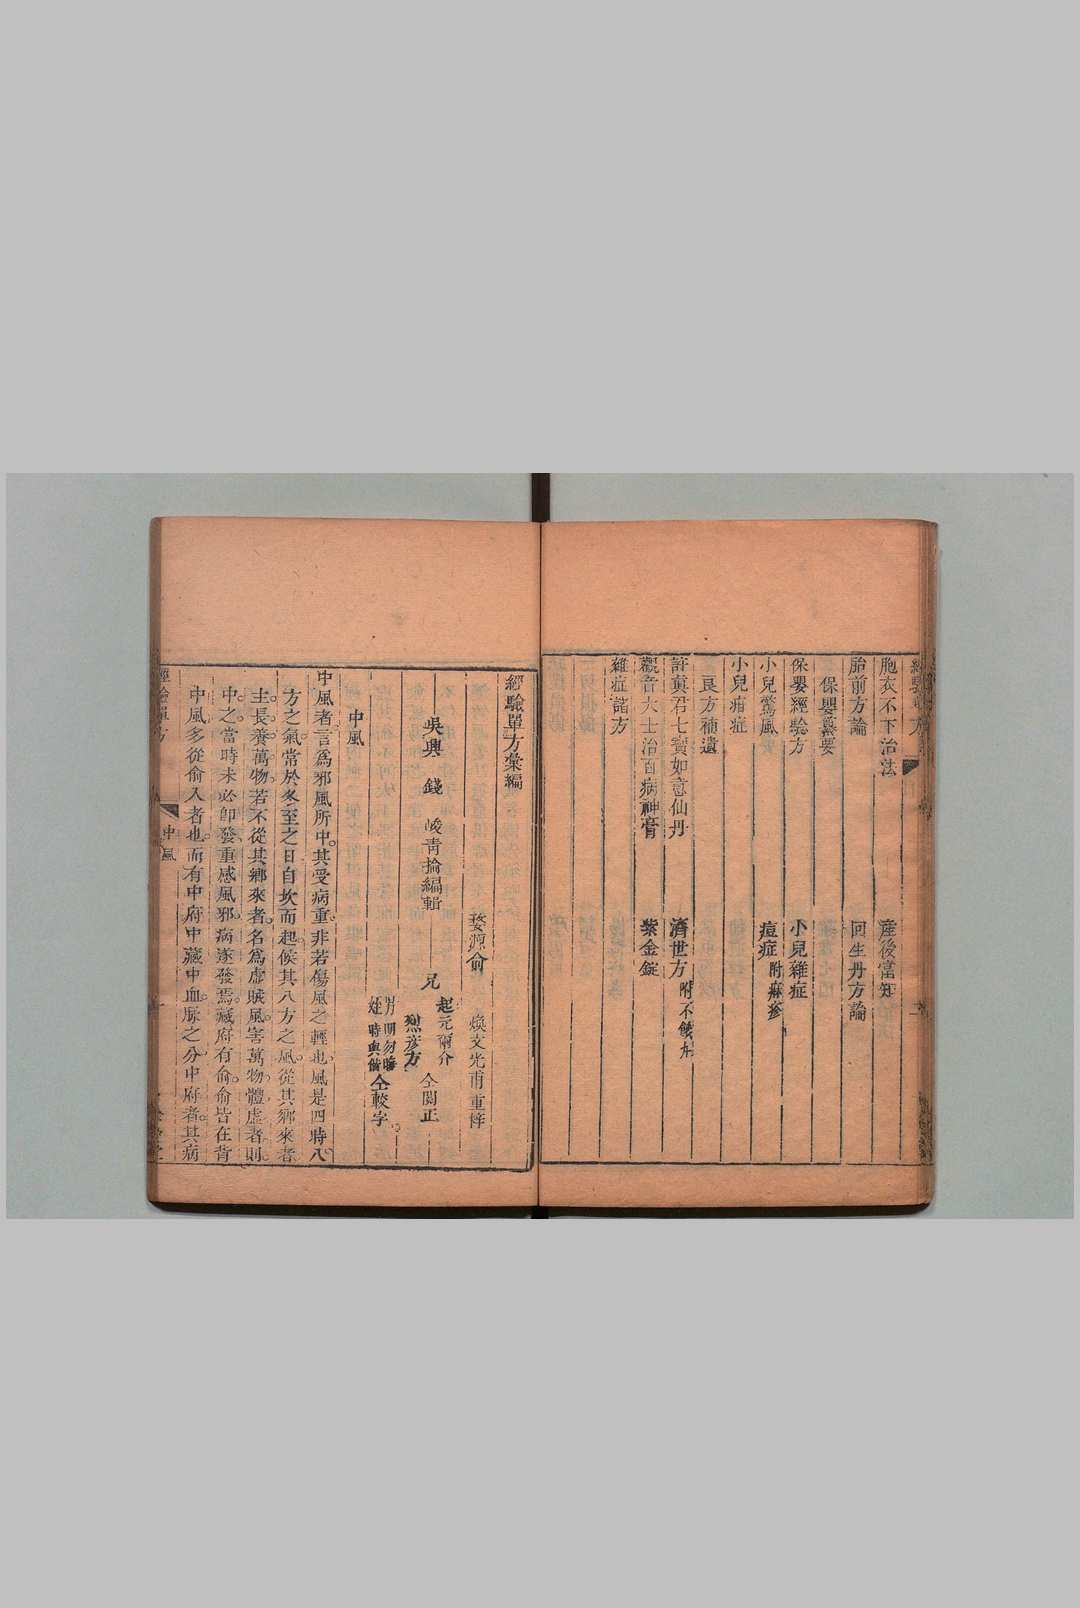 胞衣不下治法 產後當知
胎前方論 回生丹方論
保嬰彙要
保嬰經驗方 小兒雜症
小兒驚風 痘症 附痲疹
小兒疳症
良方補遺
許真君七寶如意仙丹 濟世方
觀音大士治百病神膏 紫金錠
雜症諸方
經驗單方彙編
婺源俞 煥文光甫重梓
吳興 錢 峻青掄編輯
兄 起元爾介 仝閱正
仝較字
中風
中風者言爲邪風所中其受病重非若傷風之輕也風是四時八
方之氣常於冬至之日自坎而起候其八方之風從其鄉來者
主長養萬物若不從其鄉來者名爲虛賊風害萬物體虛者則
中之當時未必卽發重感風邪病遂發焉藏府有俞俞皆在背
中風多從俞入者也而有中府中藏中血脉之分中府者其病
經驗單方 中風